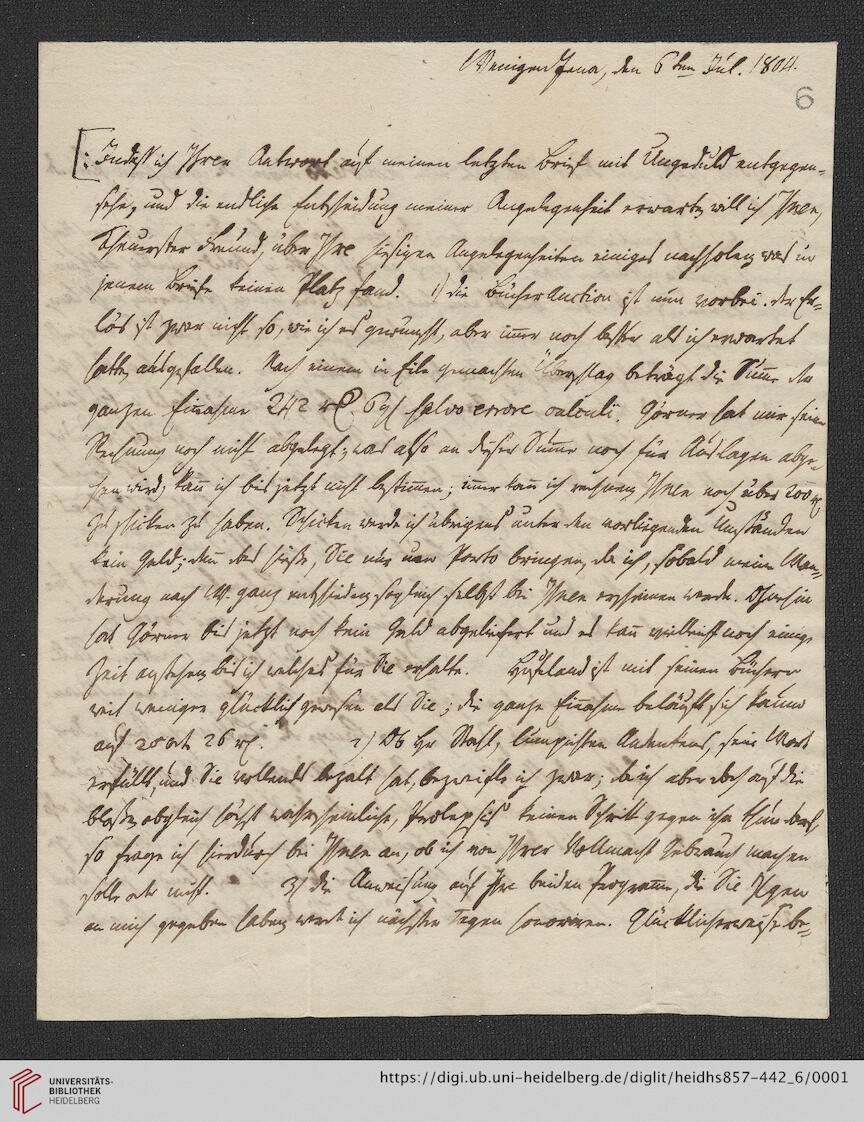 WenigenJena, den 6ten Jul. 1804.
6
[: Indeß ich Ihrer Antwort auf meinen letzten Brief mit Ungeduld entgegen-
sehe, und die endliche Entscheidung meiner Angelegenheit erwarte, will ich Ihnen,
Theuerster Freund, über Ihre hiesigen Angelegenheiten einiges nachholen, was in
jenem Briefe keinen Platz fand. 1) die BücherAuction ist nun vorbei. der Er-
lös ist zwar nicht so, wie ich es gewünscht, aber immer noch besser als ich erwartet
hatte, ausgefallen. Nach einem in Eile gemachten Überschlag beträgt die Summe der
ganzen Einnahme 242 rl. 6 gl salvo errore calculi. Görner hat mir seine
Rechnung noch nicht abgelegt; was also an dieser Summe noch für Auslagen abge-
hen wird, kann ich bis jetzt nicht bestimmen; immer kann ich rechnen, Ihnen noch über 200 rl
zu schicken zu haben. Schicken werde ich übrigens unter den vorliegenden Umständen
kein Geld; denn das hieße, Sie nur um Porto bringen, da ich, sobald meine Wan-
derung nach W. ganz entschieden, sogleich selbst bei Ihnen erscheinen werde. Ohnehin
hat Görner bis jetzt noch kein Geld abgeliefert und es kann vielleicht noch einige
Zeit anstehen, bis ich welches für Sie erhalte. Hufeland ist mit seinen Büchern
weit weniger glücklich gewesen als Sie; die ganze Einnahme beläuft sich kaum
auf 25 oder 26 rl. 2) Ob Hr Stahl, lumpichten Andenkens, sein Wort
erfüllt, und Sie vollends bezalt hat, bezweifle ich zwar; da ich aber doch auf die
bloße, obgleich höchst wahrscheinliche, Prolepsis keinen Schritt gegen ihn thun darf,
so frage ich hierdurch bei Ihnen an, ob ich von Ihrer Vollmacht Gebrauch machen
solle oder nicht. 3) die Anweisung auf Ihre beiden Programme, die Sie Ilgen
an mich gegeben haben, werde ich nächster Tagen honoriren. Glücklicherweise be-
UNIVERSITÄTS-
BIBLIOTHEK
HEIDELBERG
https://digi.ub.uni-heidelberg.de/diglit/heidhs857-442_6/0001